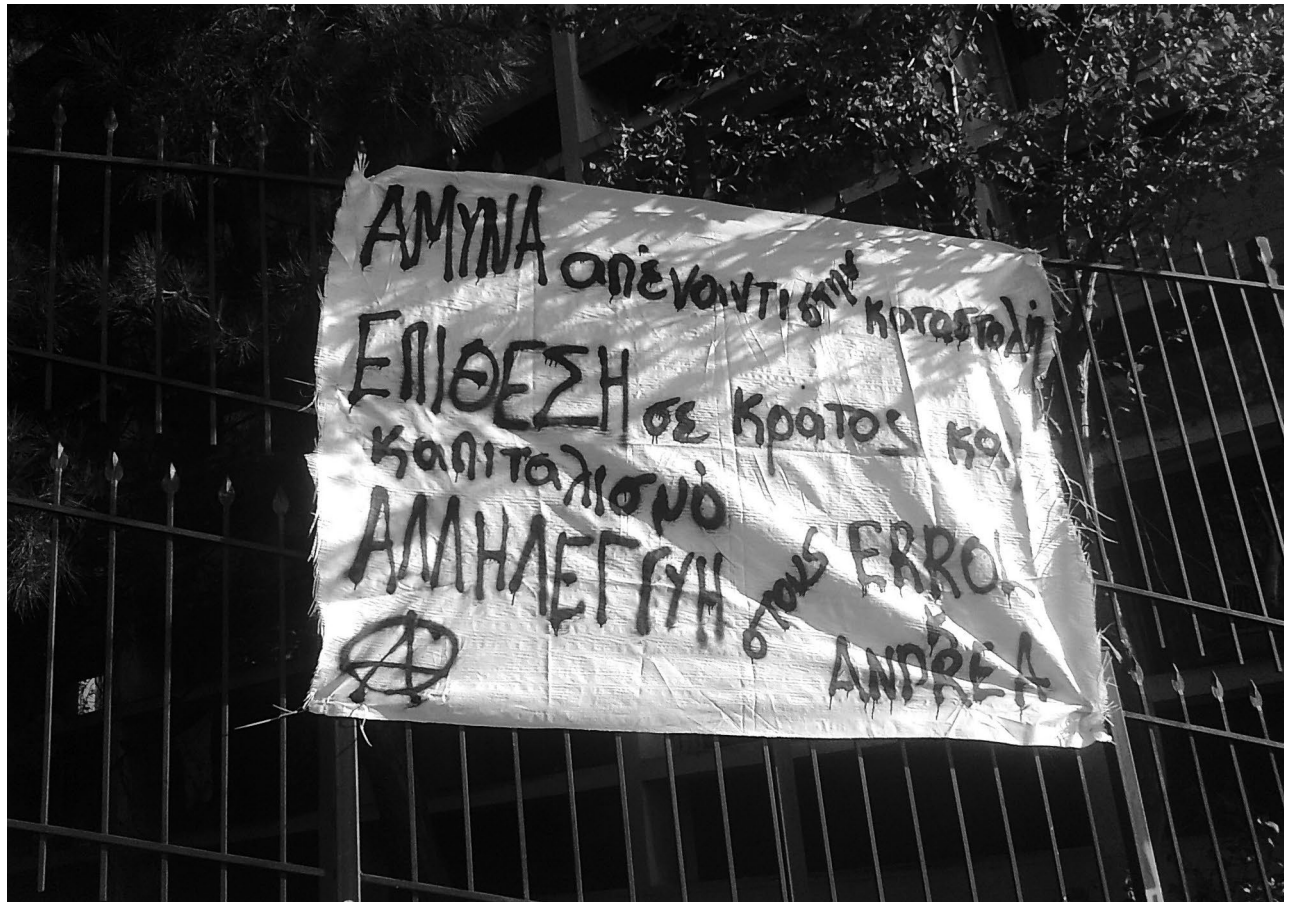 ΑΜΥΝΑ απέναντι στην καταστολή
ΕΠΙΘΕΣΗ σε κράτος κα
καπιταλισμό
ΑΛΛΗΛΕΓΓΥΗ στους ERROL
ANDREA